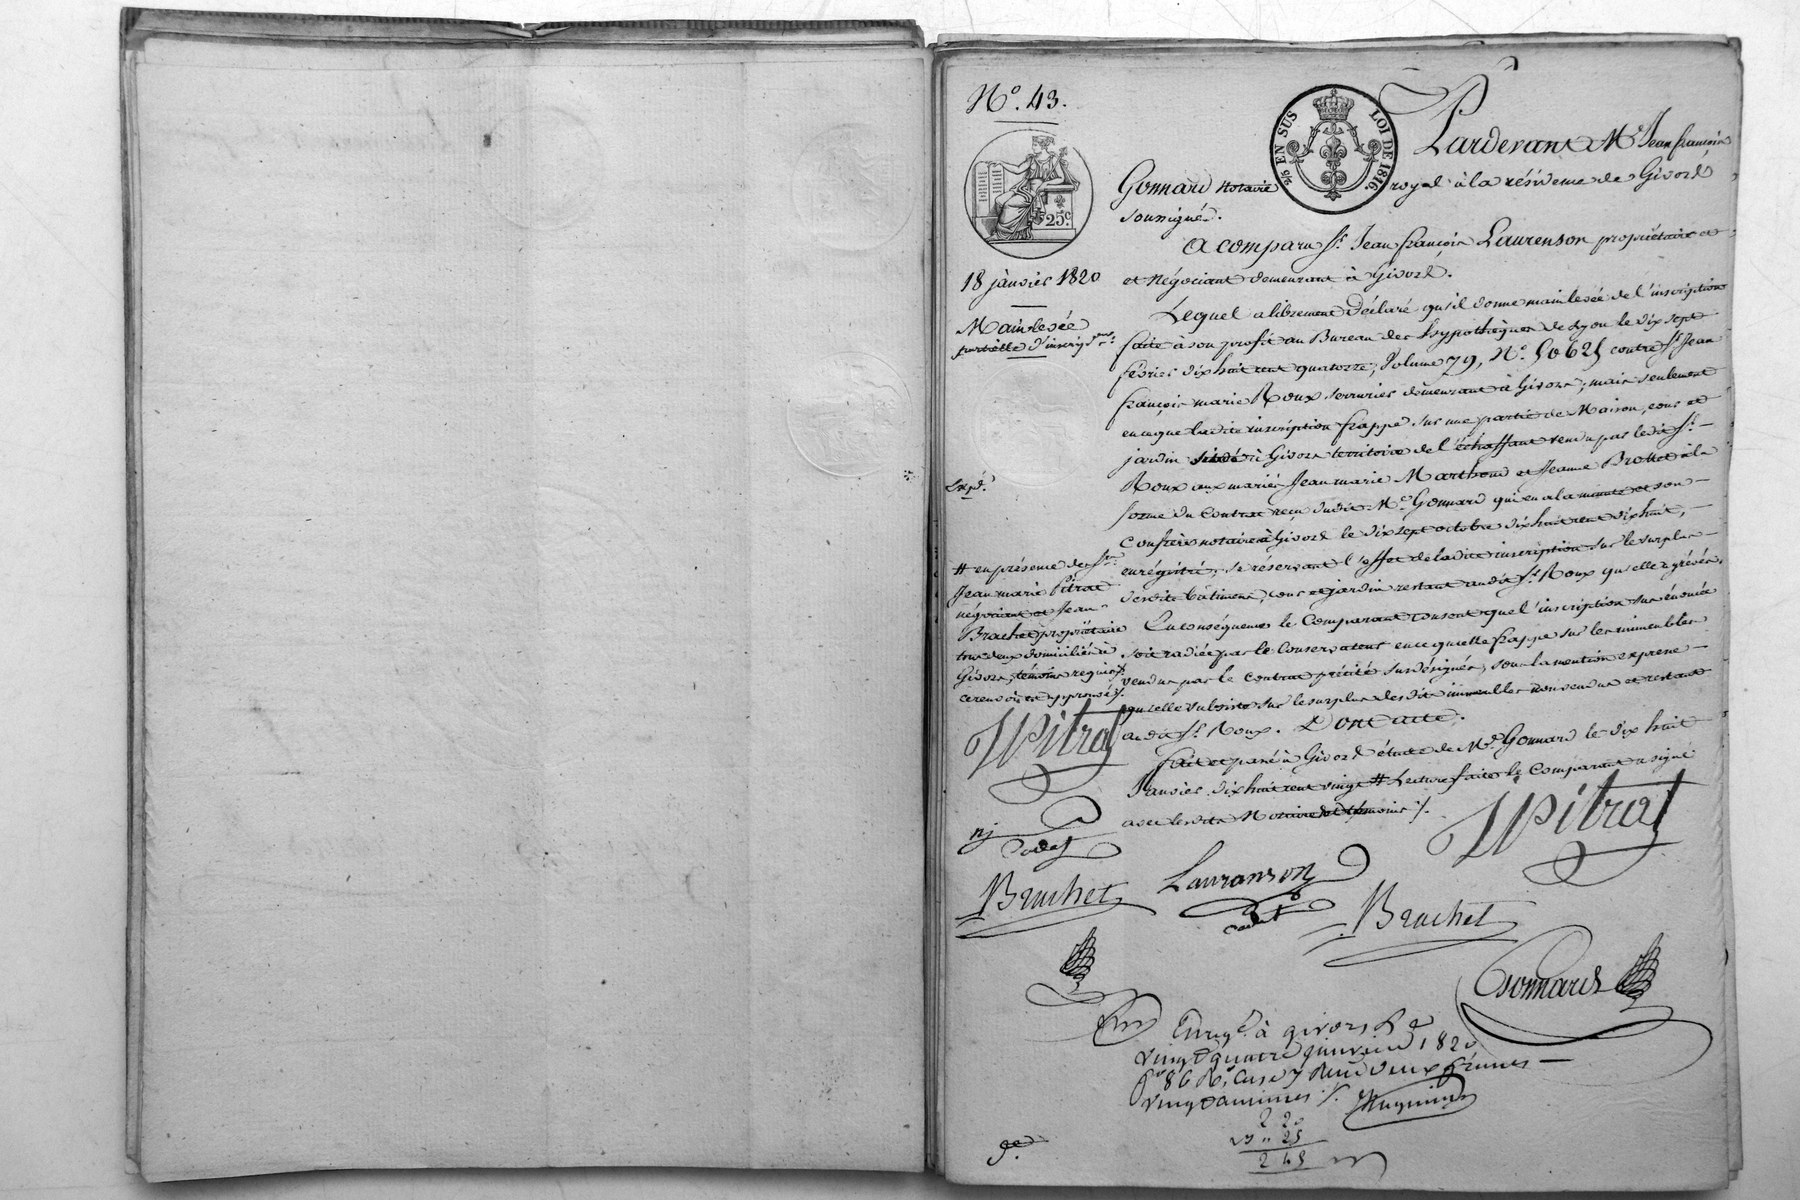 N° 43.
5/6 EN SUS LOI DE 1816.
25.c
Pardevant Me Jean françois
Gonnard notaire royal à la résidence de Givors
soussigné.
A comparu Sr Jean françois Laurenson propriétaire et
et négociant demeurant à Givors.
18 janvier 1820
Mainlevée
partielle d'inscripons
Lequel a librement Déclaré qu'il donne mainlevée de l'inscription
faite à son profit au Bureau des hypothèques de Lyon le dix sept
février dix huit cent quatorze, Volume 79, N° 50625 contre Sr Jean
françois marie Roux serrurier demeurant à Givors; mais seulement
en ce que ladite inscription frappe sur une partie de Maison, cour et
jardin situé à Givors territoire de l'échaffaut vendu par ledit Sr
Roux aux mariés Jean marie Marthoud et Jeanne Brottet à la
forme du Contrat reçu dudit Me Gonnard qui en a la minute et son
Confrère notaire à Givors le dix sept octobre dix huit cent dix huit,
enrégistré; se réservant l'effet de ladite inscription sur le surplus
desdits bâtiment, cour et jardin restant audit Sr Roux qu'elle a grévés.
En conséquence le Comparant consent que l'inscription sus énoncée
soit radiée par le Conservateur en ce qu'elle frappe sur les immeubles
vendus par le contrat précité susdésignés, sous la mention expresse
qu'elle subsiste sur le surplus desdits immeubles non vendus et restant
audit Sr Roux. Dont acte.
fait et passé à Givors étude de Me Gonnard le dix huit
Janvier dix huit cent vingt # Lecture faite le Comparant a signé
avec lesdits Notaire et témoins ./.
Exp.é
# en présence de Srs
Jean marie Pitrat
négociant et Jean
Brachet propriétaire
tous deux domiciliés à
Givors, témoins requis ./.
ce renvoi est approuvé ./.
JPitrat
JPitrat
Brachet
Lauranson
Brachet
Gonnard
Enregé à givors Le
vingt quatre janvier 1820
fo 86 Ro Case 7 Reçu deux francs
vingt centimes ./.
2 20
" 25
2 45